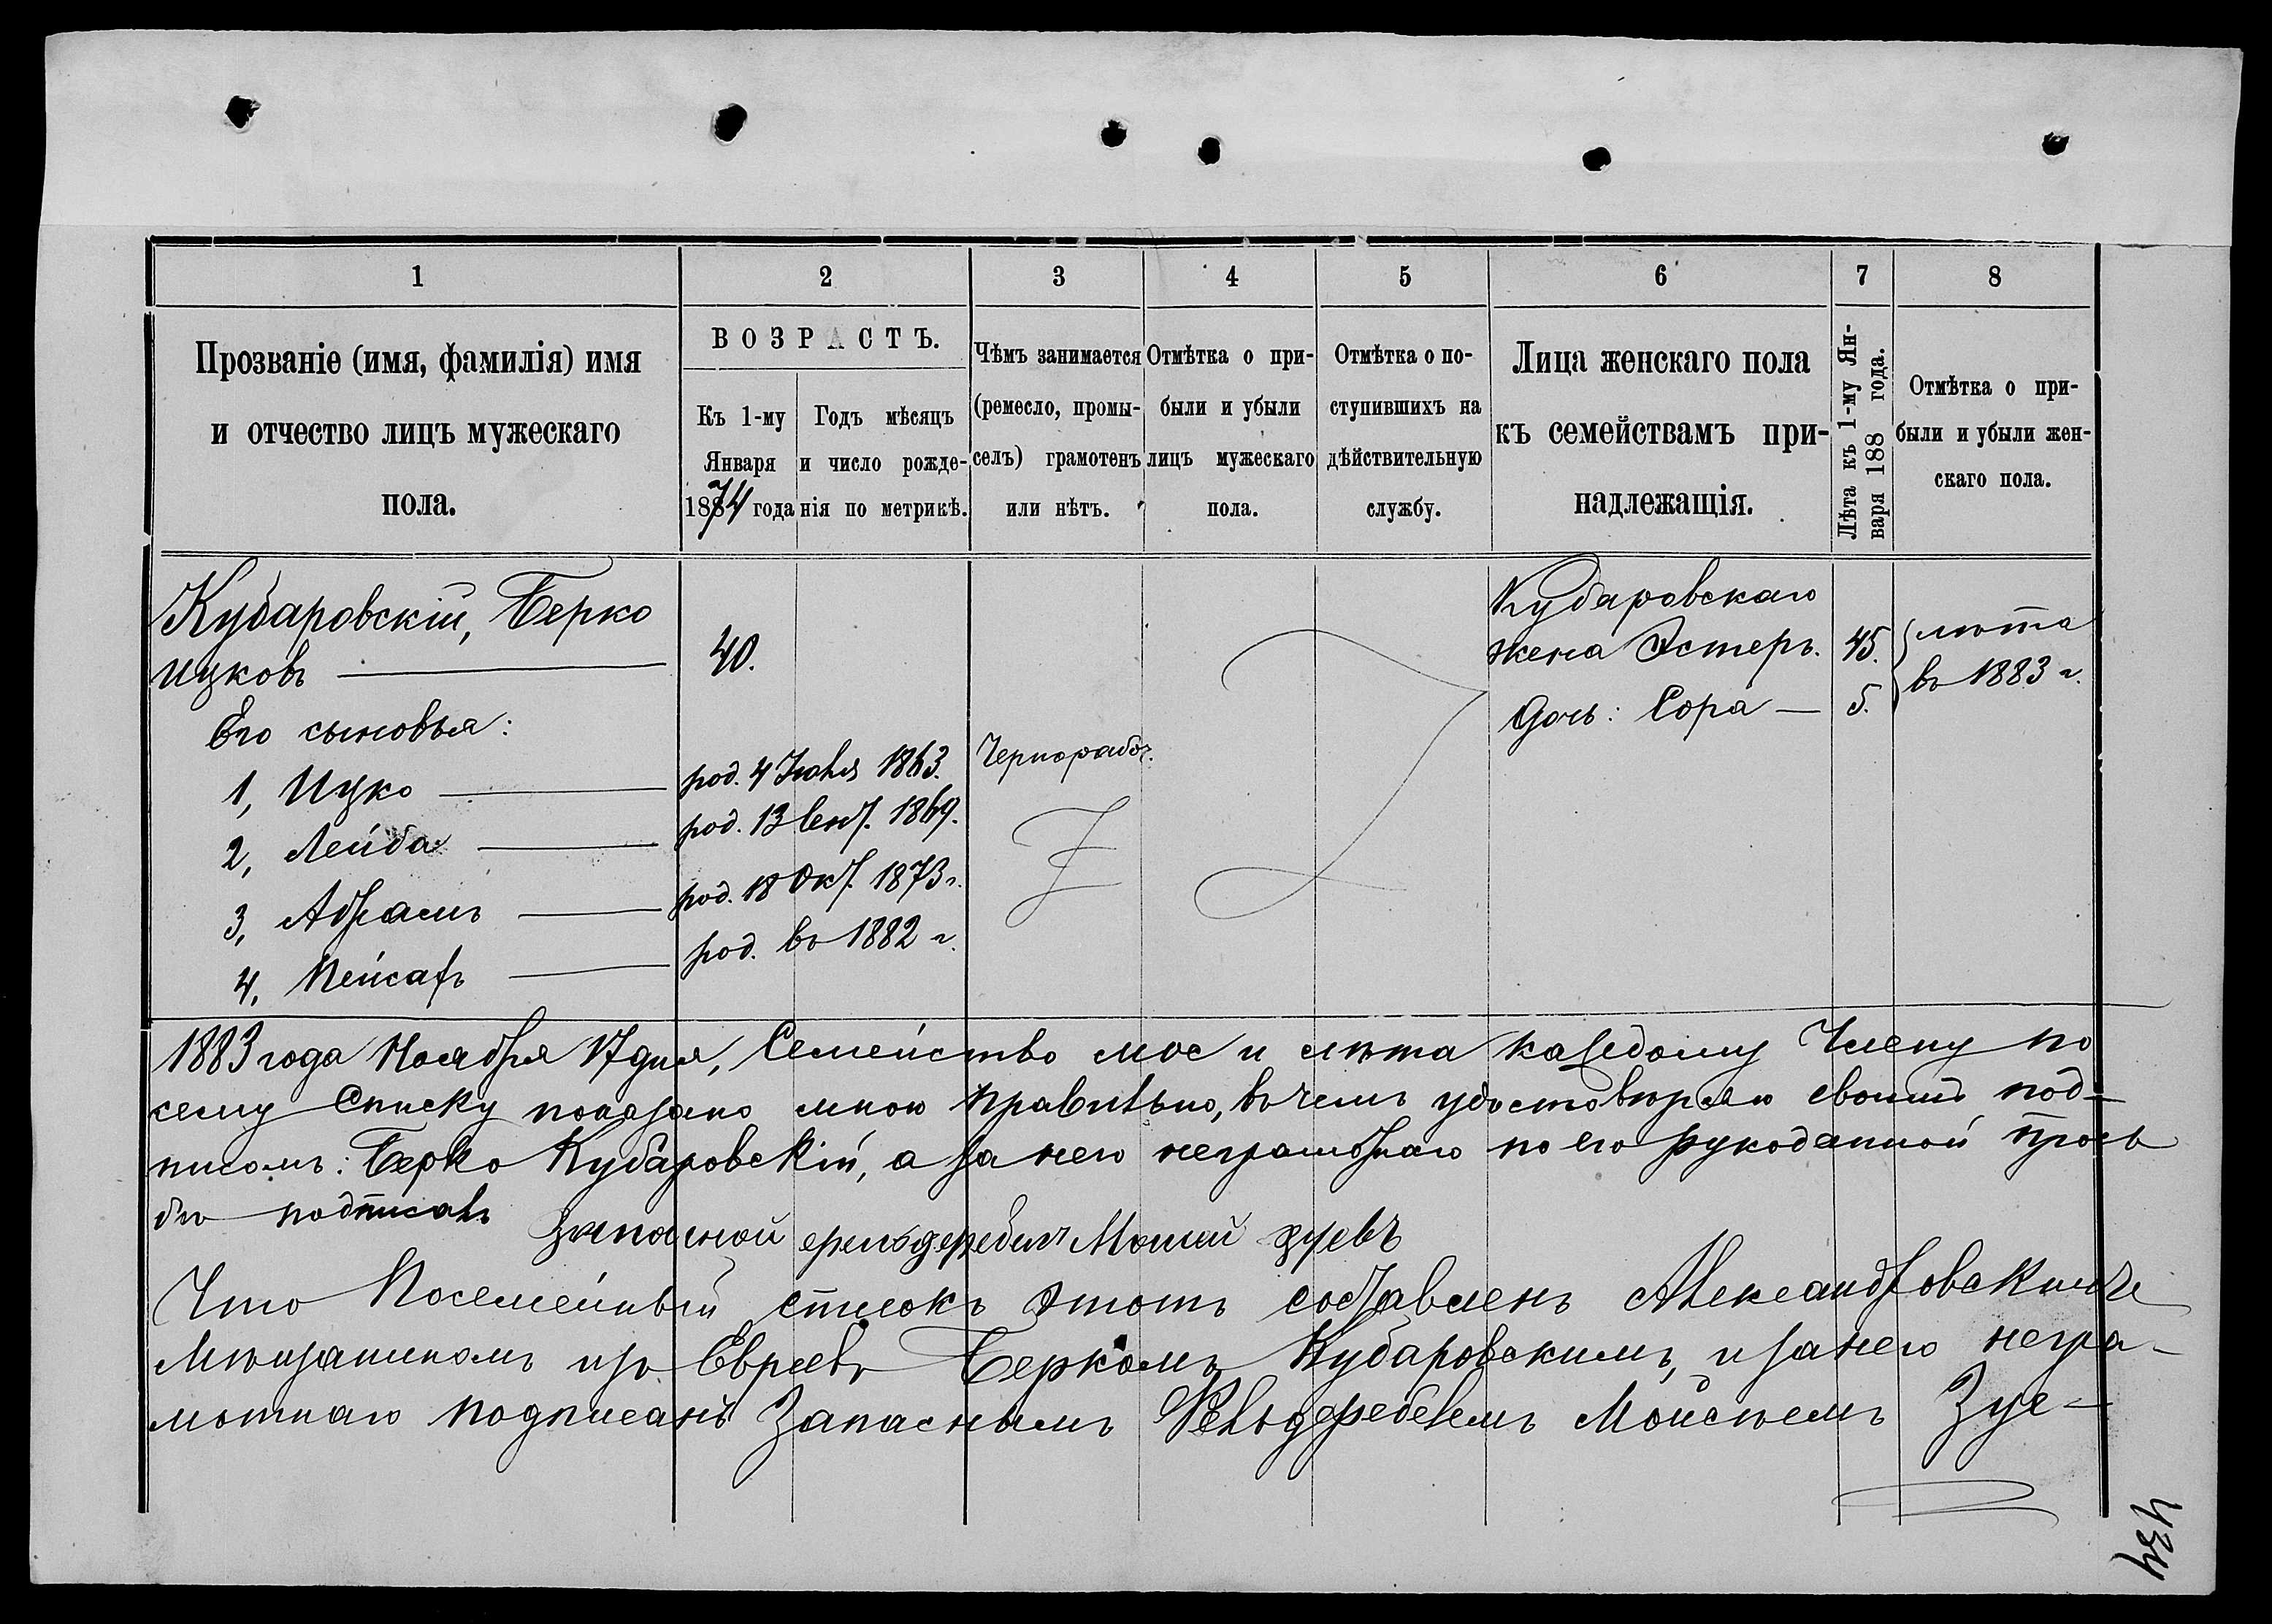 1 2 3 4 5 6 7 8
Прозваніе (имя, фамилія) имя
и отчество лицъ мужескаго
пола.
ВОЗРАСТЪ.
Къ 1-му
Января
1874 года
Годъ мѣсяцъ
и число рожде-
нія по метрикѣ.
Чѣмъ занимается
(ремесло, промы-
селъ) грамотенъ
или нѣтъ.
Отмѣтка о при-
были и убыли
лицъ мужескаго
пола.
Отмѣтка о по-
ступившихъ на
дѣйствительную
службу.
Лица женскаго пола
къ семействамъ при-
надлежащія.
Лѣта къ 1-му Ян-
варя 188 года.
Отмѣтка о при-
были и убыли жен-
скаго пола.
Кубаровскій, Берко
Ицковъ
40.
Его сыновья:
1, Ицко род. 4 Іюля 1863. Чернорабоч.
2, Лейба род. 13 Сент. 1869.
3, Абрамъ род. 18 Окт. 1873 г.
4, Пейсахъ род. въ 1882 г.
Кубаровскаго
жена Эстеръ. 45.
дочь: Сора 5.
лѣта
въ 1883 г.
1883 года Ноября 17 дня, Семейство мое и лѣта каждому Члену по
сему Списку показано мною правильно, въ чемъ удостовѣряю своимъ под-
писомъ: Берко Кубаровскій, а за него неграмотнаго по его рукоданной прозь
бѣ подписалъ
Запасной Моисей Зуевъ
Что Посемейный списокъ этотъ составленъ Александровскимъ
Мѣщаниномъ изъ Евреевъ Беркомъ Кубаровскимъ, и за него негра-
мотнаго подписанъ Запаснымъ Фельдфебелемъ Моисѣемъ Зуе-
434